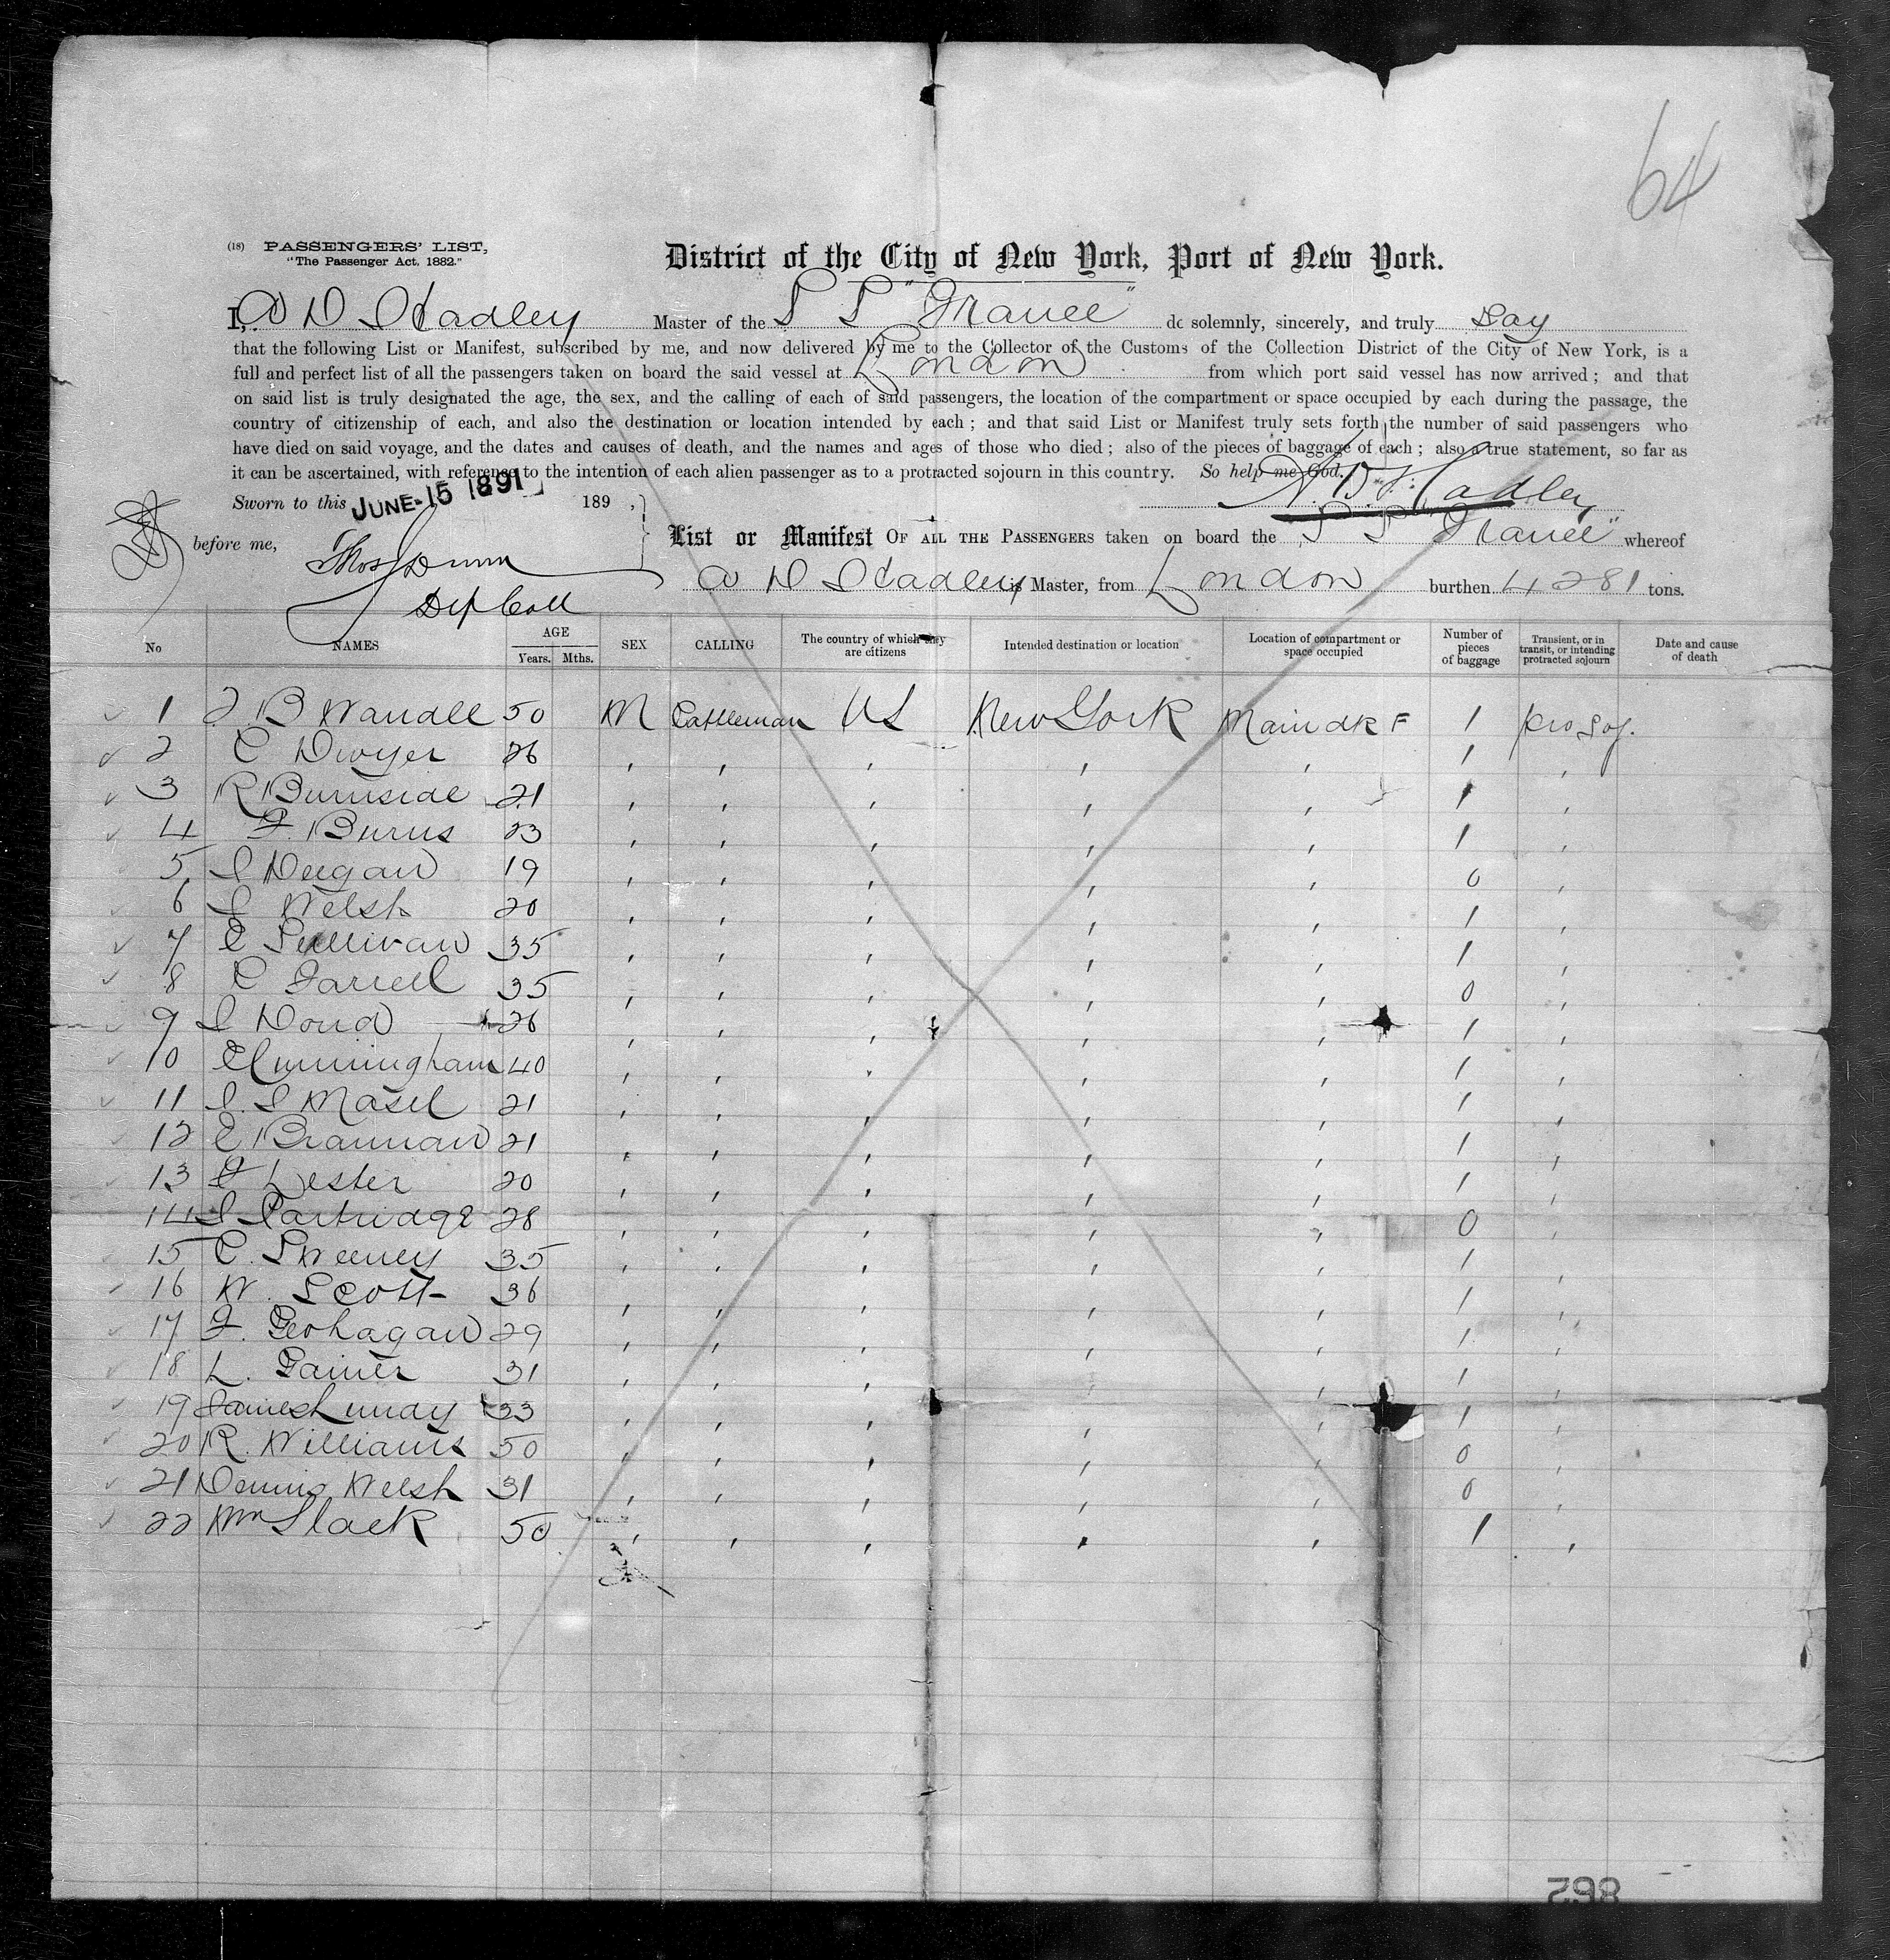 64
(18) PASSENGERS' LIST,
"The Passenger Act, 1882."
District of the City of New York, Port of New York.
I, A D Hadley Master of the S S "France" do solemnly, sincerely, and truly Say
that the following List or Manifest, subscribed by me, and now delivered by me to the Collector of the Customs of the Collection District of the City of New York, is a
full and perfect list of all the passengers taken on board the said vessel at London from which port said vessel has now arrived; and that
on said list is truly designated the age, the sex, and the calling of each of said passengers, the location of the compartment or space occupied by each during the passage, the
country of citizenship of each, and also the destination or location intended by each; and that said List or Manifest truly sets forth the number of said passengers who
have died on said voyage, and the dates and causes of death, and the names and ages of those who died; also of the pieces of baggage of each; also a true statement, so far as
it can be ascertained, with reference to the intention of each alien passenger as to a protracted sojourn in this country. So help me God.
Sworn to this JUNE 15 1891 189 , Hadley
before me, Thos Dunn
Dep Coll
List or Manifest OF ALL THE PASSENGERS taken on board the S S "France" whereof
A D Hadley is Master, from London burthen 4281 tons.
No NAMES AGE Years. Mths. SEX CALLING The country of which they are citizens Intended destination or location Location of compartment or space occupied Number of pieces of baggage Transient, or in transit, or intending protracted sojourn Date and cause of death
1 J B Wandle 50 M Cattleman US New York Main dk F 1 pro Soj.
2 C Dwyer 26 , , , , , 1 ,
3 R Burnside 21 , , , , , 1 ,
4 F. Burns 23 , , , , , 1 ,
5 J Deegan 19 , , , , , 0 ,
6 J Welsh 20 , , , , , 1 ,
7 C Sullivan 35 , , , , , 1 ,
8 C Farrell 35 , , , , , 0 ,
9 J Doud 26 , , , , , 1 ,
10 C Cunningham 40 , , , , , 1 ,
11 J. J Masel 21 , , , , , 1 ,
12 C Brannan 21 , , , , , 1 ,
13 F Lester 20 , , , , , 1 ,
14 J Partridge 28 , , , , , 0 ,
15 C. Sweeney 35 , , , , , 1 ,
16 W. Scott 36 , , , , , 1 ,
17 F. Geohagan 29 , , , , , 1 ,
18 L. Gainer 31 , , , , , 1 ,
19 James Lunay 33 , , , , , 1 ,
20 R. Williams 50 , , , , , 0 ,
21 Dennis Welsh 31 , , , , , 0 ,
22 Wm Slack 50 , , , , , 1 ,
298